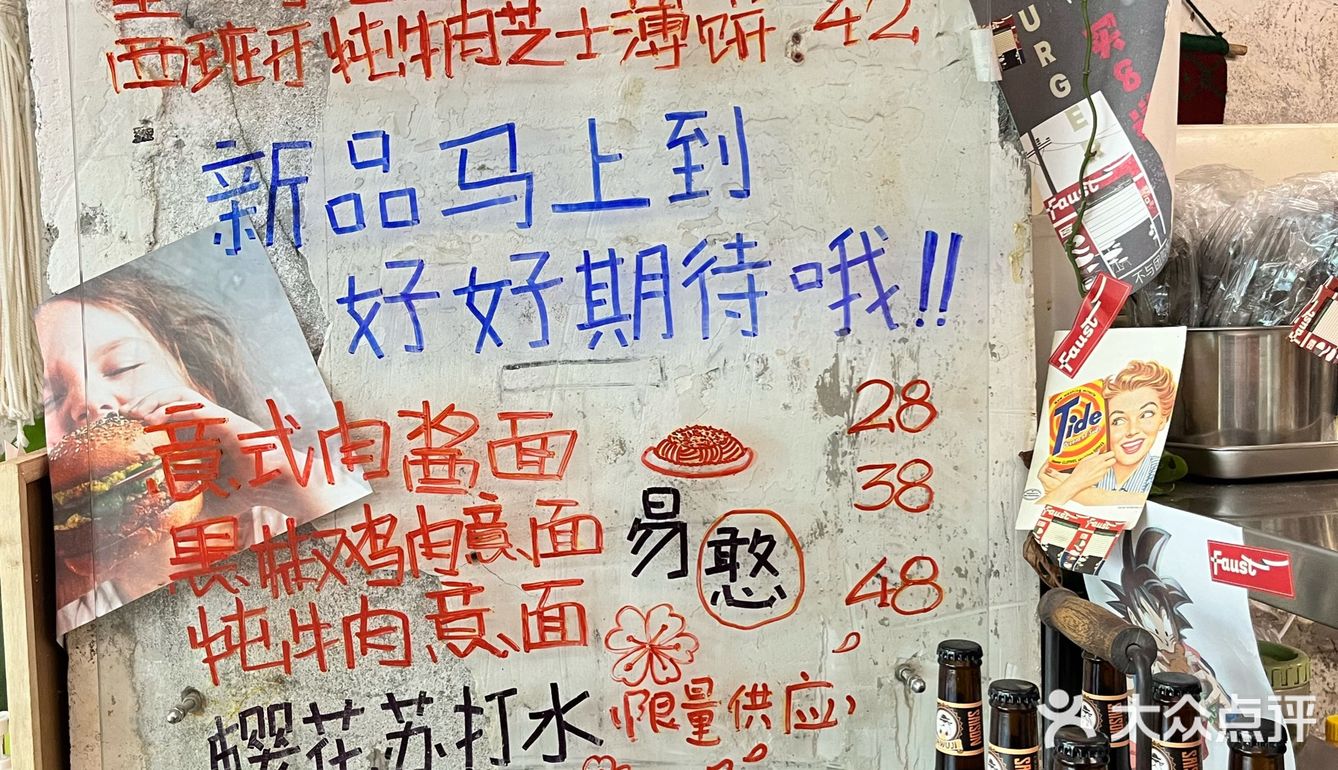 西班牙炖牛肉芝士薄饼 42
新品马上到
好好期待哦!!
意式肉酱面 28
黑椒鸡肉意面 38
易憨
炖牛肉意面 48
樱花苏打水 限量供应
URGE
Faust
Faust
Tide
Faust
SAISON
大众点评